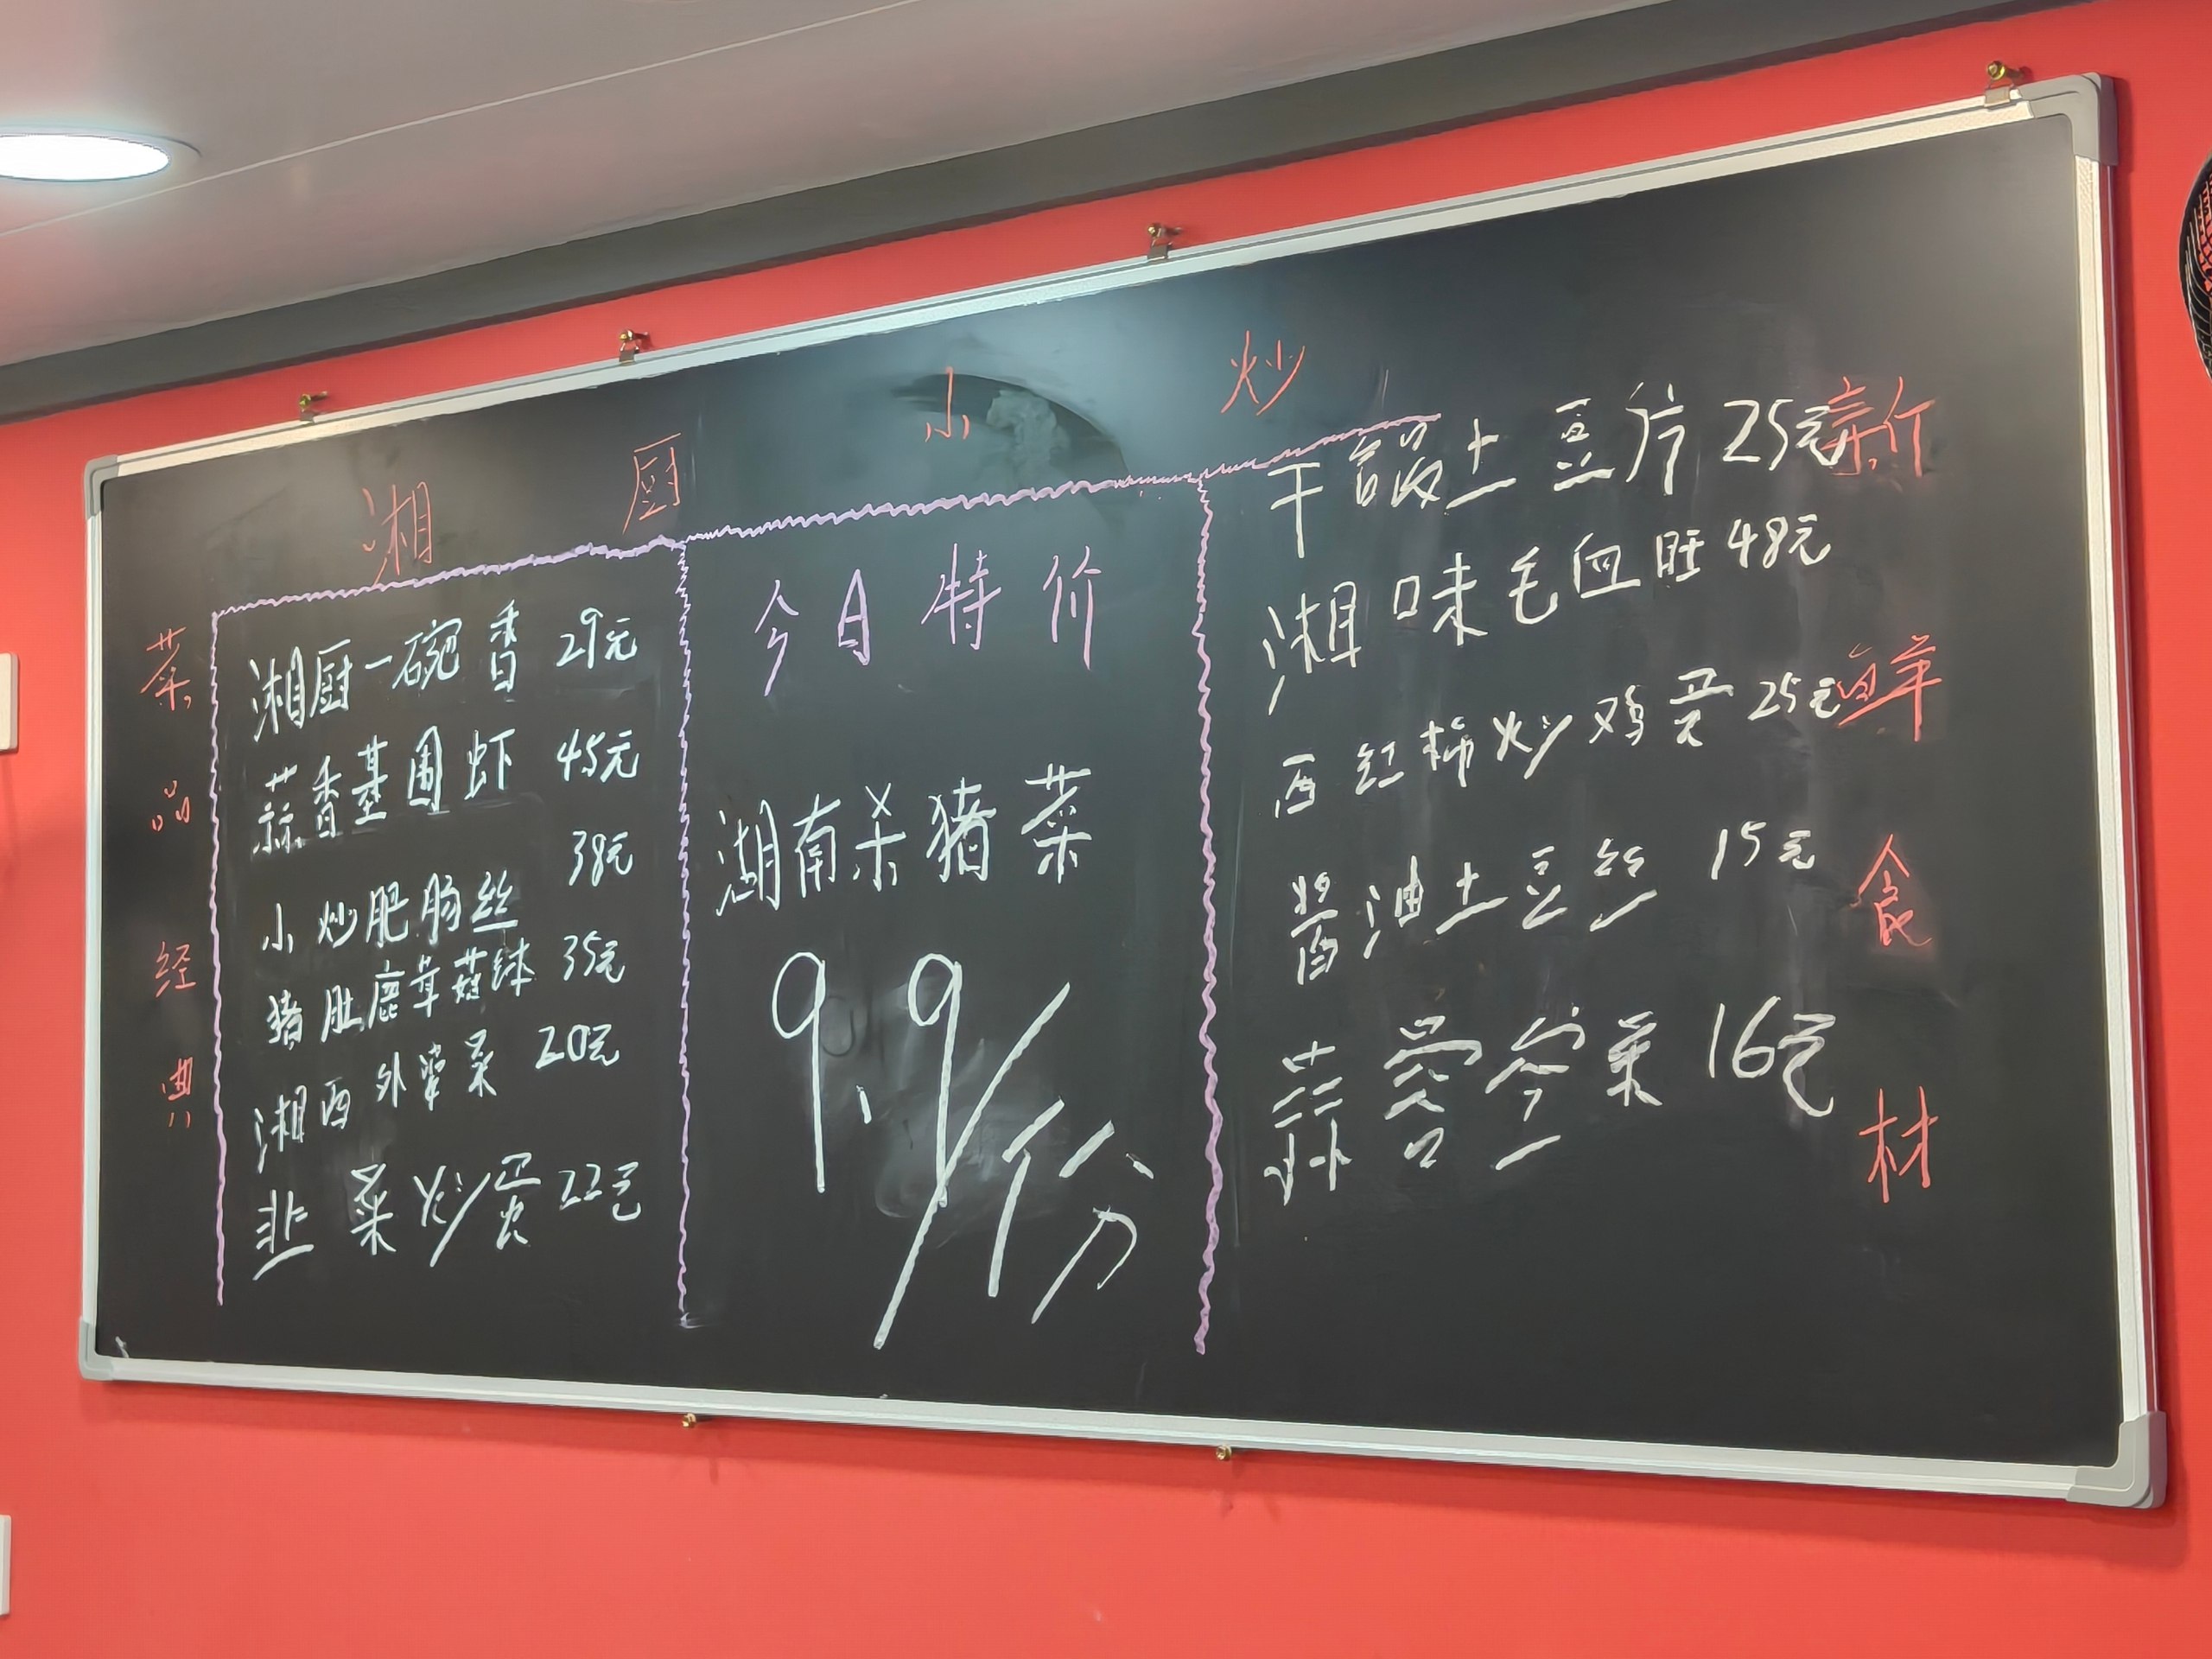 湘厨小炒
菜品经典
湘厨一碗香 29元
蒜香基围虾 45元
小炒肥肠丝 38元
猪肚鹿茸菇钵 35元
湘西外婆菜 20元
韭菜炒蛋 22元
今日特价
湖南杀猪菜
9.9/份
干锅土豆片 25元
湘味毛血旺 48元
西红柿炒鸡蛋 25元
酱油土豆丝 15元
蒜蓉空菜 16元
新鲜食材